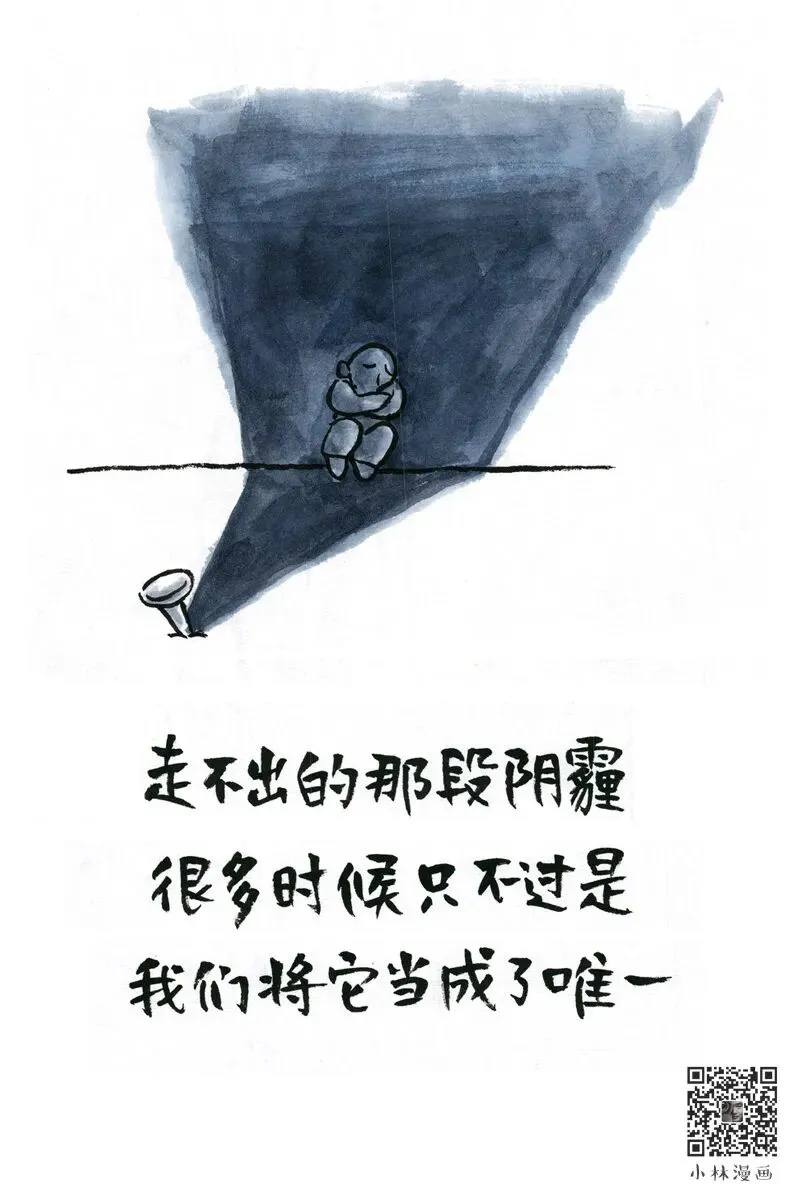 走不出的那段阴霾
很多时候只不过是
我们将它当成了唯一
小林漫画